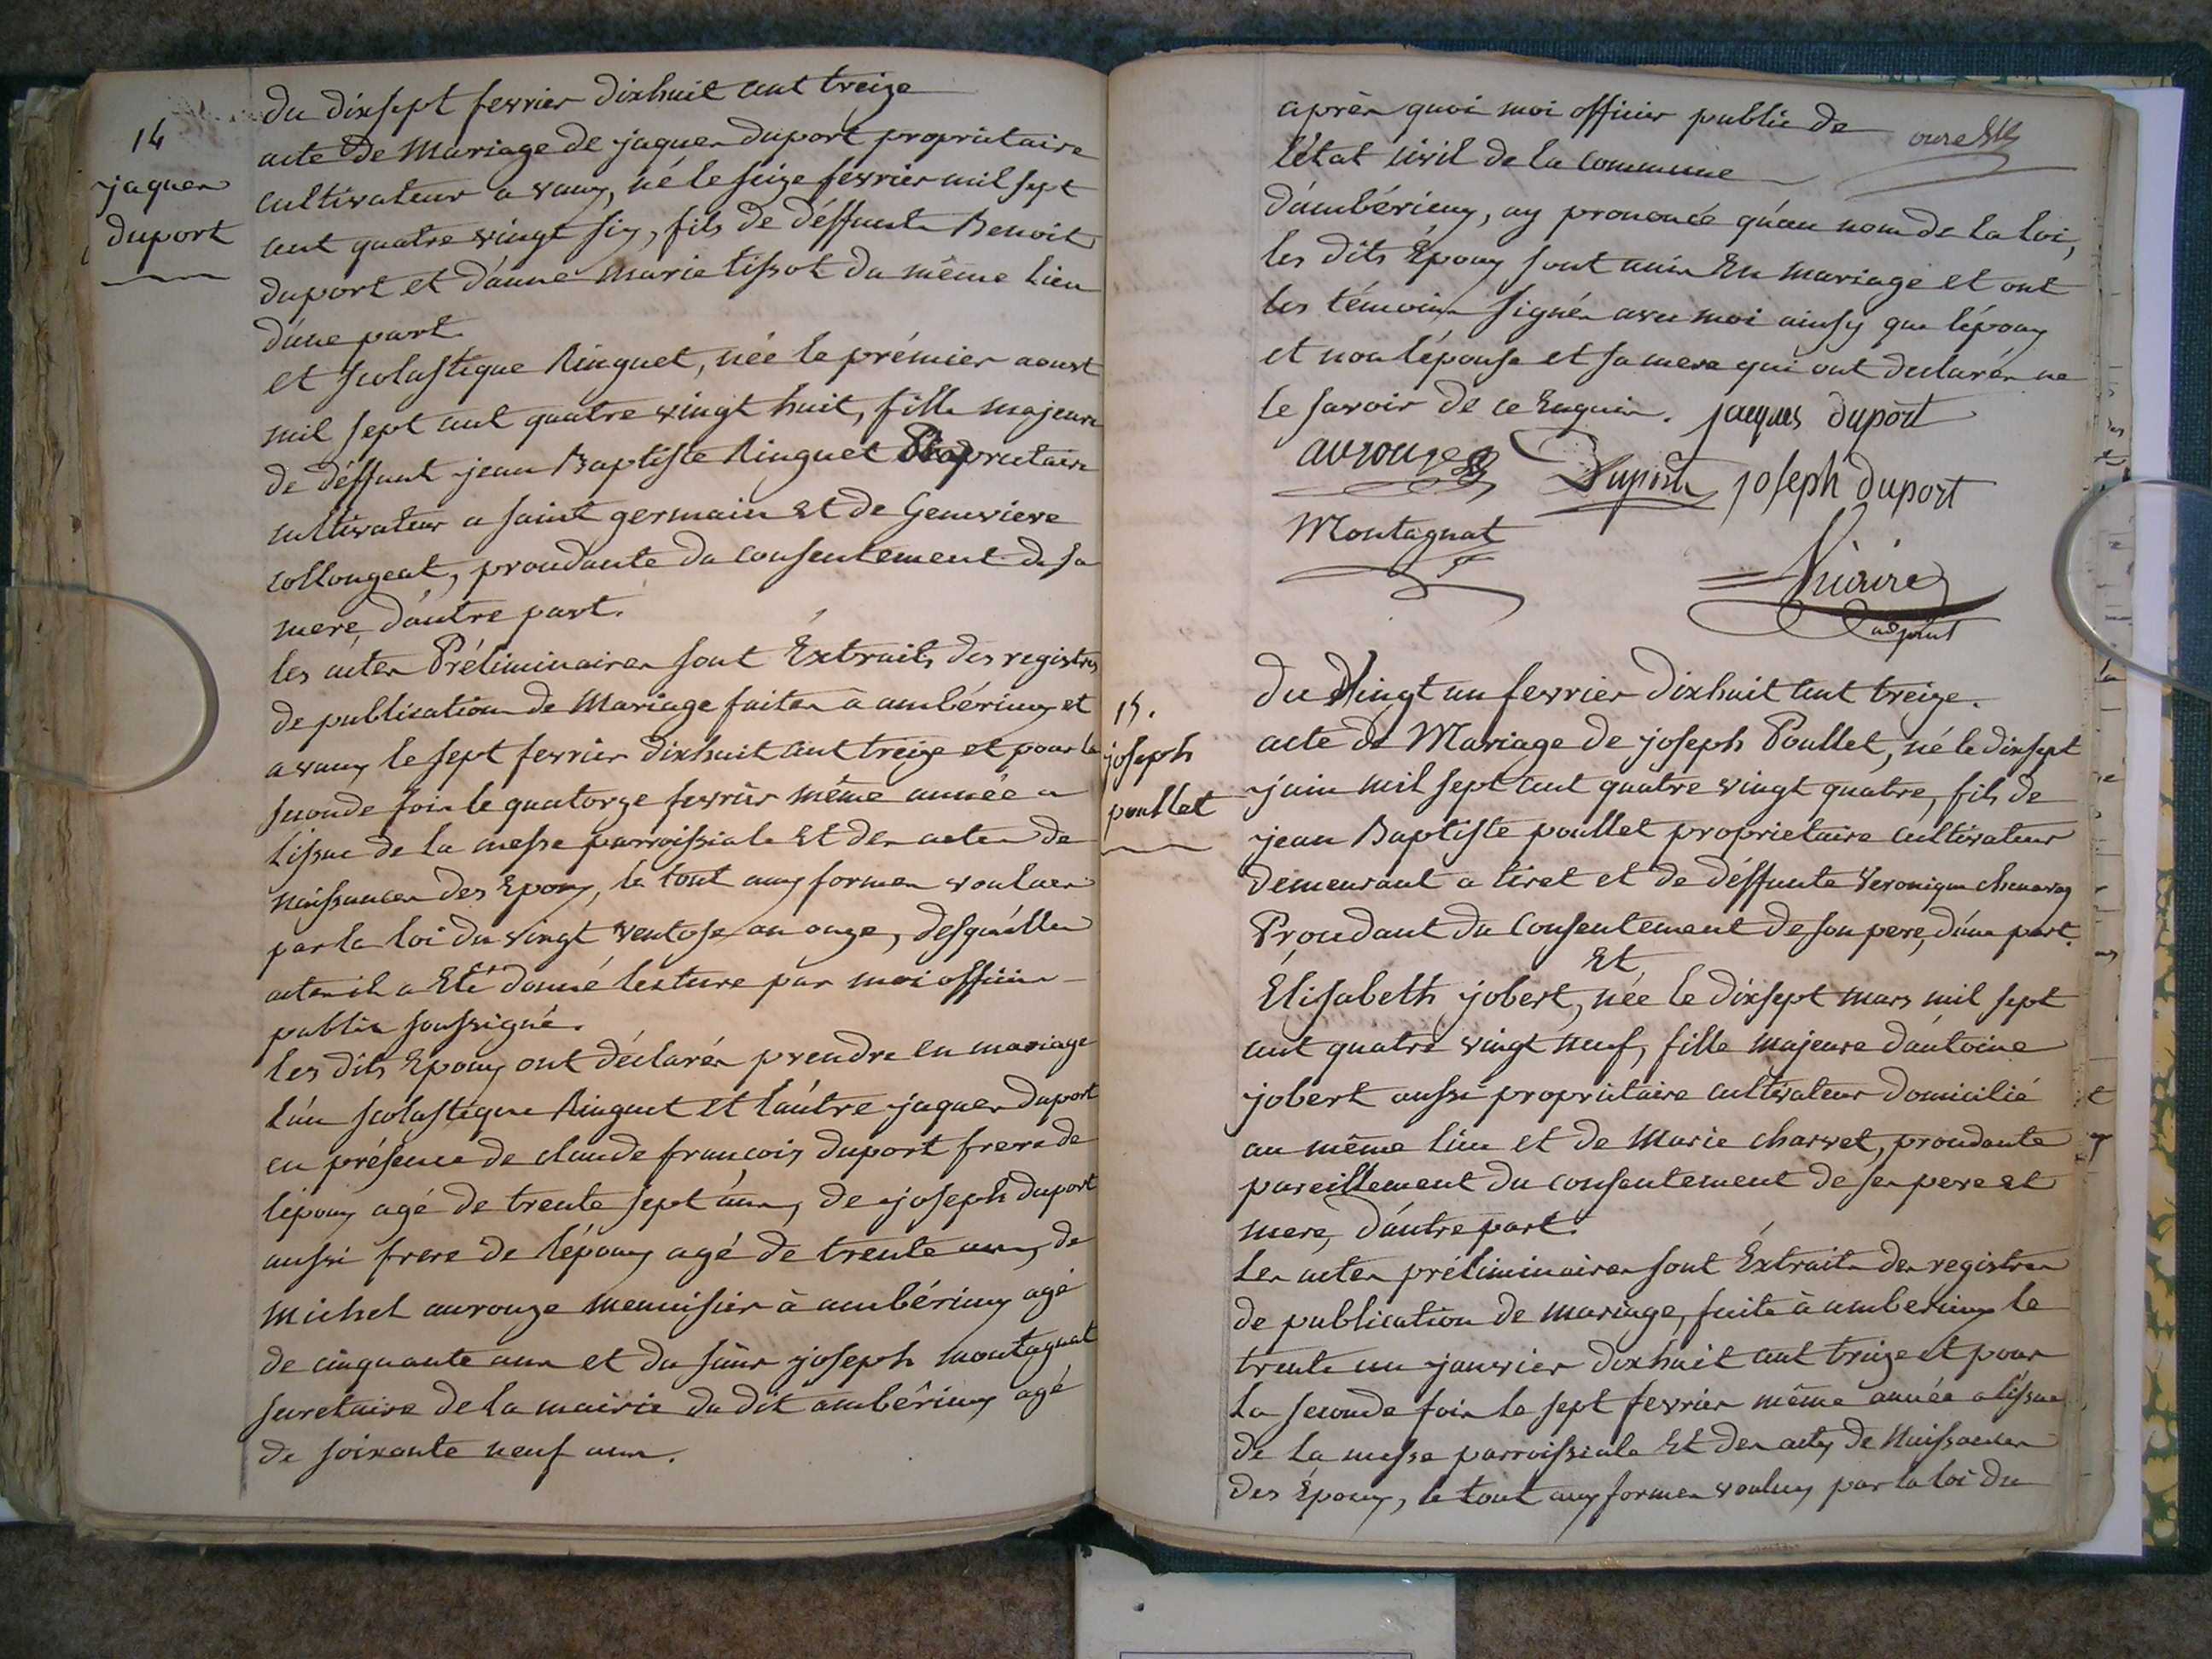 14
jaques
duport
du dixsept fevrier dixhuit cent treize
acte de Mariage de jaques duport propriétaire
cultivateur a vaux, né le seize fevrier mil sept
cent quatre vingt six, fils de déffunts Benoit
duport et d'anne marie tissot du même lieu
d'une part.
et scolastique Ringuet, née le prémier aoust
mil sept cent quatre vingt huit, fille majeure
de déffunt jean Baptiste Ringuet Propriétaire
cultivateur a saint germain et de Genevieve
collongeat, procédante du consentement de sa
mere, d'autre part.
les actes Préliminaires sont Extraits des registres
de publication de Mariage faites à ambérieux et
a vaux le sept fevrier dixhuit cent treize et pour la
seconde fois le quatorze fevrier même année a
l'issue de la messe parroissiale et des actes de
naissances des Epoux, le tout aux formes voulues
par la loi du vingt ventose an onze, desquélles
actes il a Eté donné lecture par moi officier
public soussigné.
les dits Epoux ont déclarés prendre en mariage
l'un scolastique Ringuet et l'autre jaques duport
en présence de claude françois duport frere de
l'époux agé de trente sept ans, de joseph duport
aussi frere de l'époux agé de trente ans, de
michel avrouze menuisier à ambérieux agé
de cinquante ans et du sieur joseph montagnat
secretaire de la mairie du dit ambérieux agé
de soixante neuf ans.
après quoi moi officier public de
l'état civil de la commune
d'ambérieux, ay prononcé qu'au nom de la loi,
les dits Epoux sont unis En mariage et ont
les témoins signés avec moi ainsy que l'époux
et non l'épouse et sa mere qui ont declarés ne
le savoir de ce Enquis. jacques duport
avrouze Duport joseph duport
Montagnat
adjoint
15.
joseph
poullet
du Vingt un fevrier dixhuit cent treize.
acte de Mariage de joseph Poullet, né le dixsept
juin mil sept cent quatre vingt quatre, fils de
jean Baptiste poullet proprietaire cultivateur
demeurant a tiret et de déffunte Veronique
Procédant du Consentement de son pere, d'une part.
Et
Élisabeth jobert, née le dixsept mars mil sept
cent quatre vingt neuf, fille majeure d'antoine
jobert aussi propriétaire cultivateur domicilié
au même lieu et de Marie charvet, procédante
pareillement du consentement de ses pere et
mere, d'autre part.
Les actes préliminaires sont Extraits des registres
de publication de mariage, faite à amberieux le
trente un janvier dixhuit cent treize et pour
la seconde fois le sept fevrier même année a l'issue
de la messe parroissiale Et des actes de Naissances
des Époux, le tout aux formes voulues par la loi du